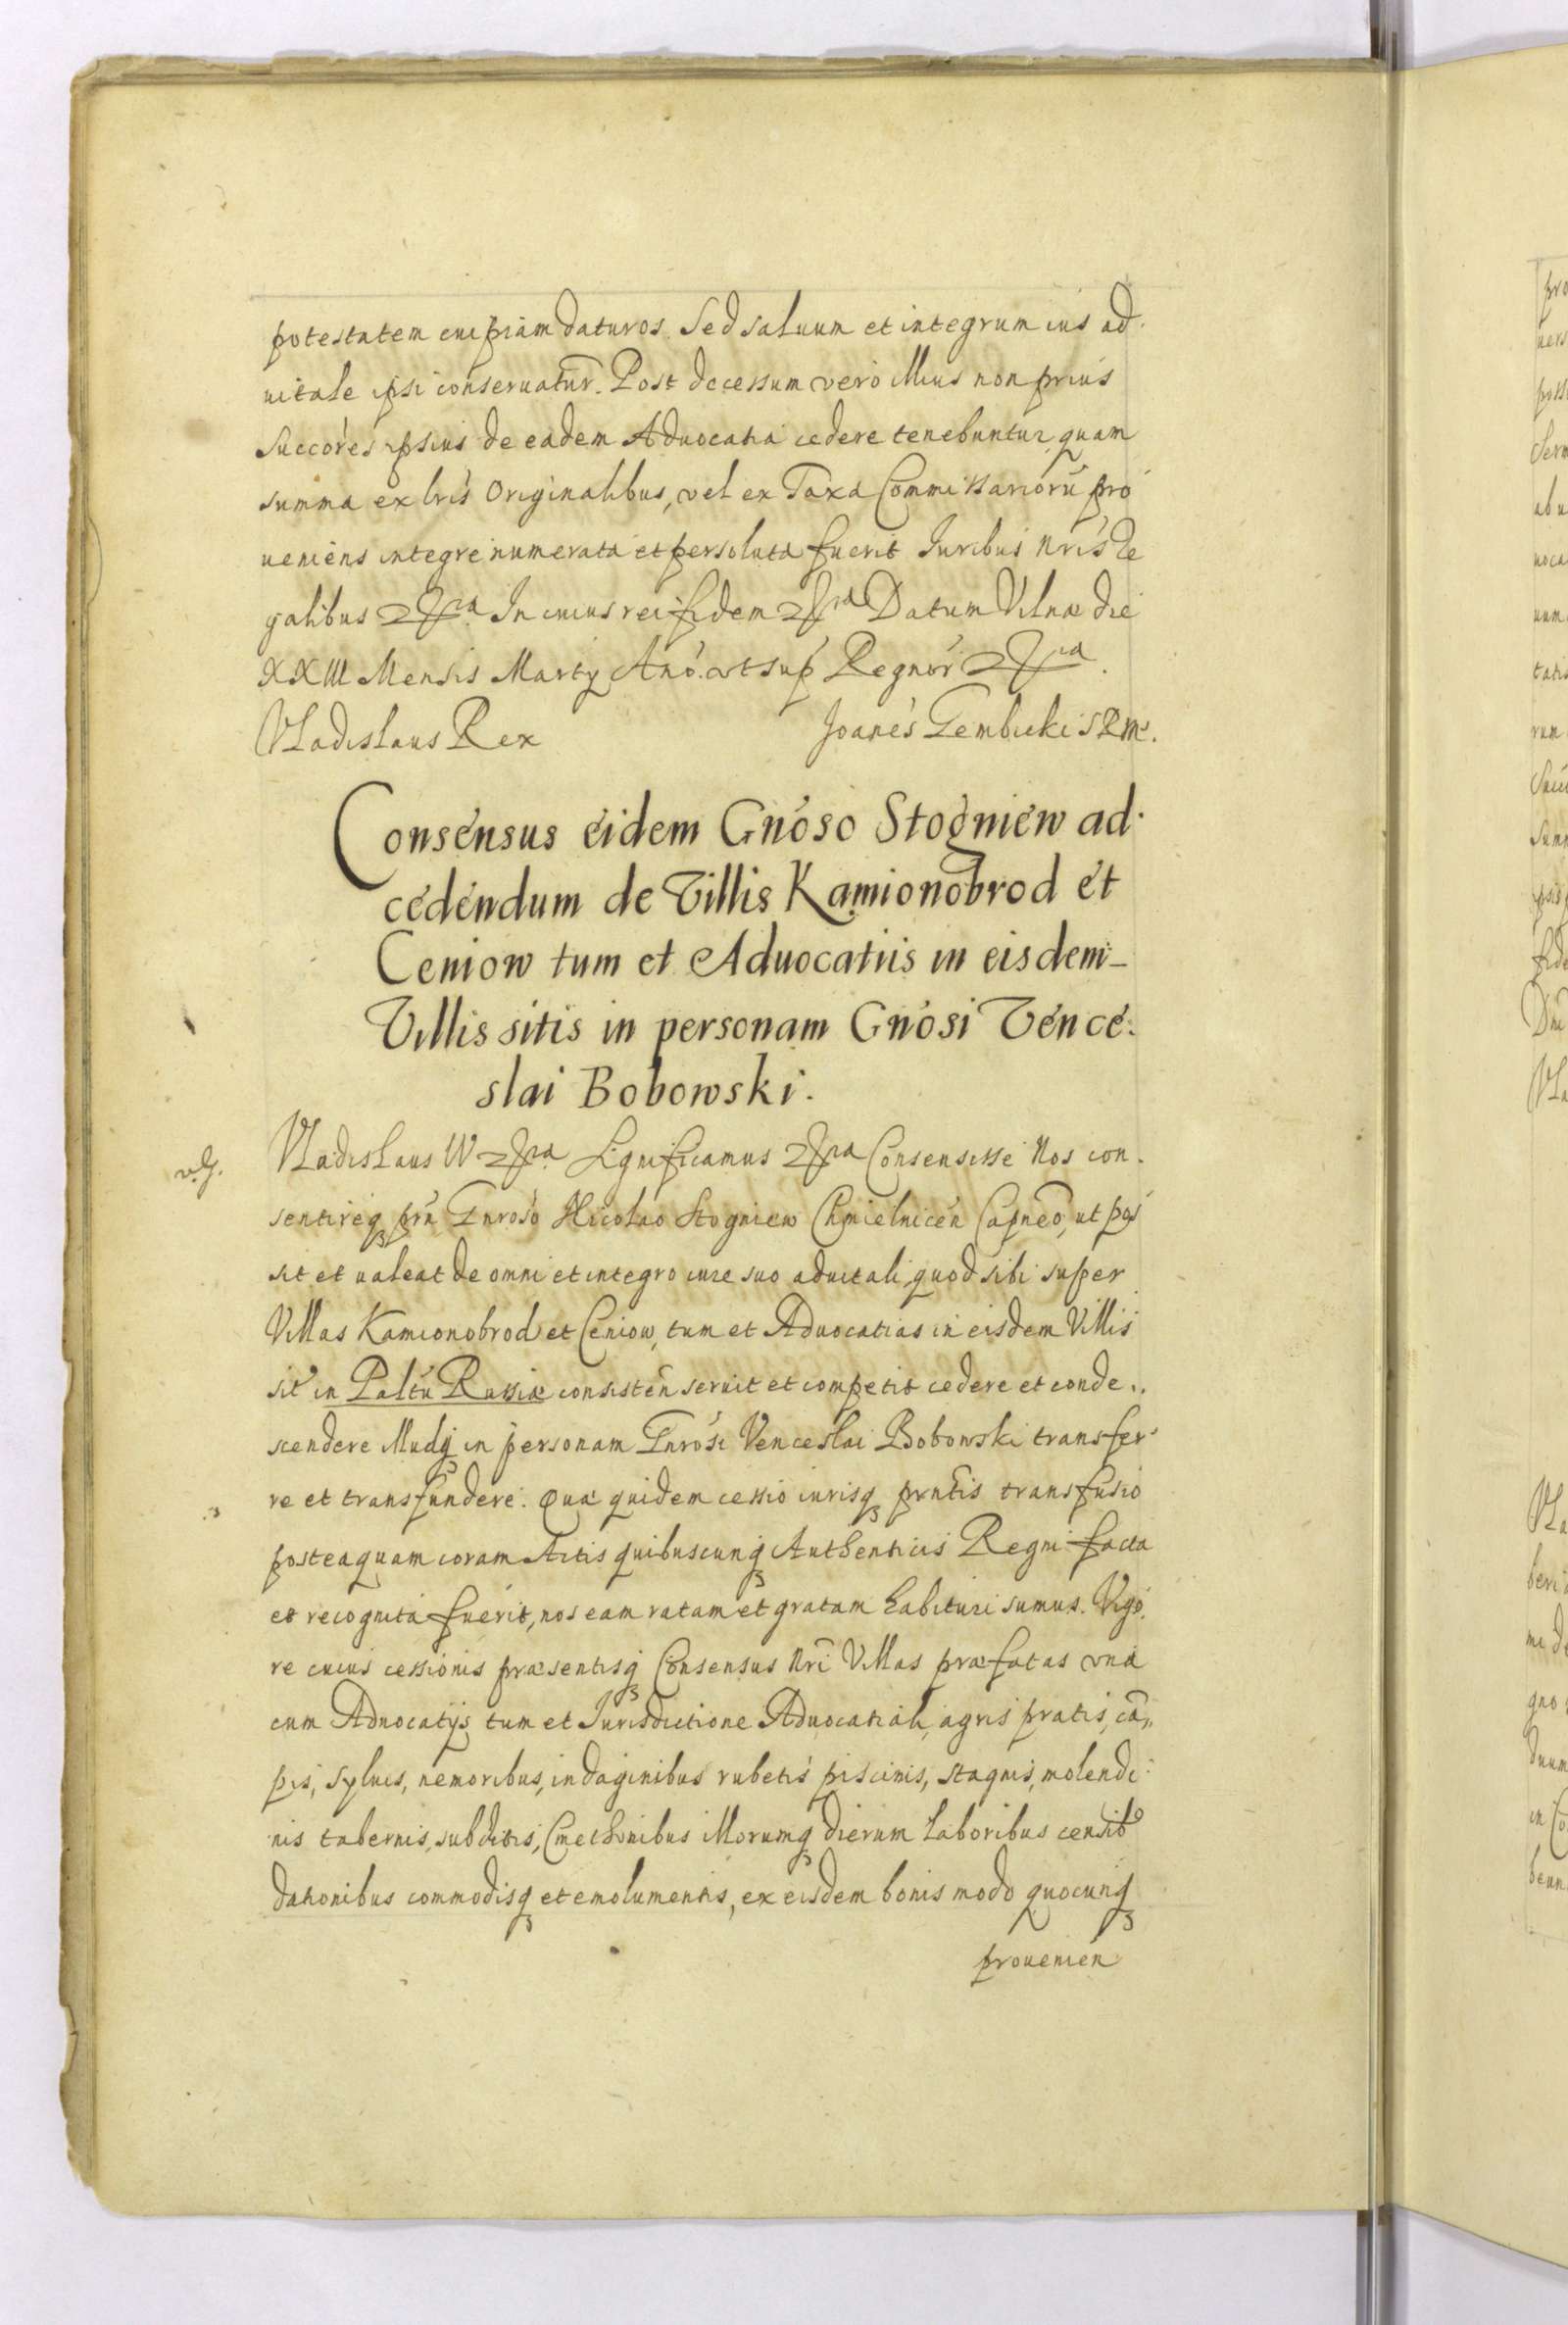 potestatem cuipiam daturos. Sed saluum et integrum ius ad.
uitale ipsi conseruatur. Post decessum vero illius non prius
Succores ipsius de eadem Aduocatia cedere tenebuntur, quam
summa ex lris Originalibus, vel ex Taxa Commissariorũ pro
ueniens integre numerata et persoluta fuerit Iuribus nris Re
galibus etc In cuius rei fidem etc Datum Vilnæ die
XXIII Mensis Martij Ano. vt sup Regnor etc.
Vladislaus Rex Joanes Gembicki SRMs.
Consensus eidem Gnoso Stogniew ad.
cedendum de Villis Kamionobrod et
Ceniow tum et Aduocatiis in eisdem
Villis sitis in personam Gnosi Vence.
slai Bobowski.
Vladislaus IV etc Significamus etc Consensisse Nos con.
sentireq prn Gnroso Nicolao Stogniew Chmielnicen Capneo, ut pos
sit et ualeat de omni et integro iure suo aduitali, quod sibi super
Villas Kamionobrod et Ceniow, tum et Aduocatias in eisdem Villis
sit in Paltu Russiæ consisten seruit et competit cedere et conde..
scendere illudq in personam Gnrosi Venceslai Bobowski transfer
re et transfundere. Quæ quidem cessio iurisq prntis transfusio
posteaquam coram Actis quibuscunq Authenticis Regni facta
et recognita fuerit, nos eam ratam et gratam habituri sumus. Vigo.
re cuius cessionis præsentisq Consensus nri Villas præfatas vna
cum Aduocatijs tum et Jurisdictione Aduocatiali, agris pratis, cã,,
pis, syluis, nemoribus, indaginibus rubetis piscinis, stagnis, molendi
nis tabernis, subditis, Cmethonibus illorumq dierum laboribus censib9
dationibus commodisq et emolumentis, ex eisdem bonis modo quocunq
prouenien